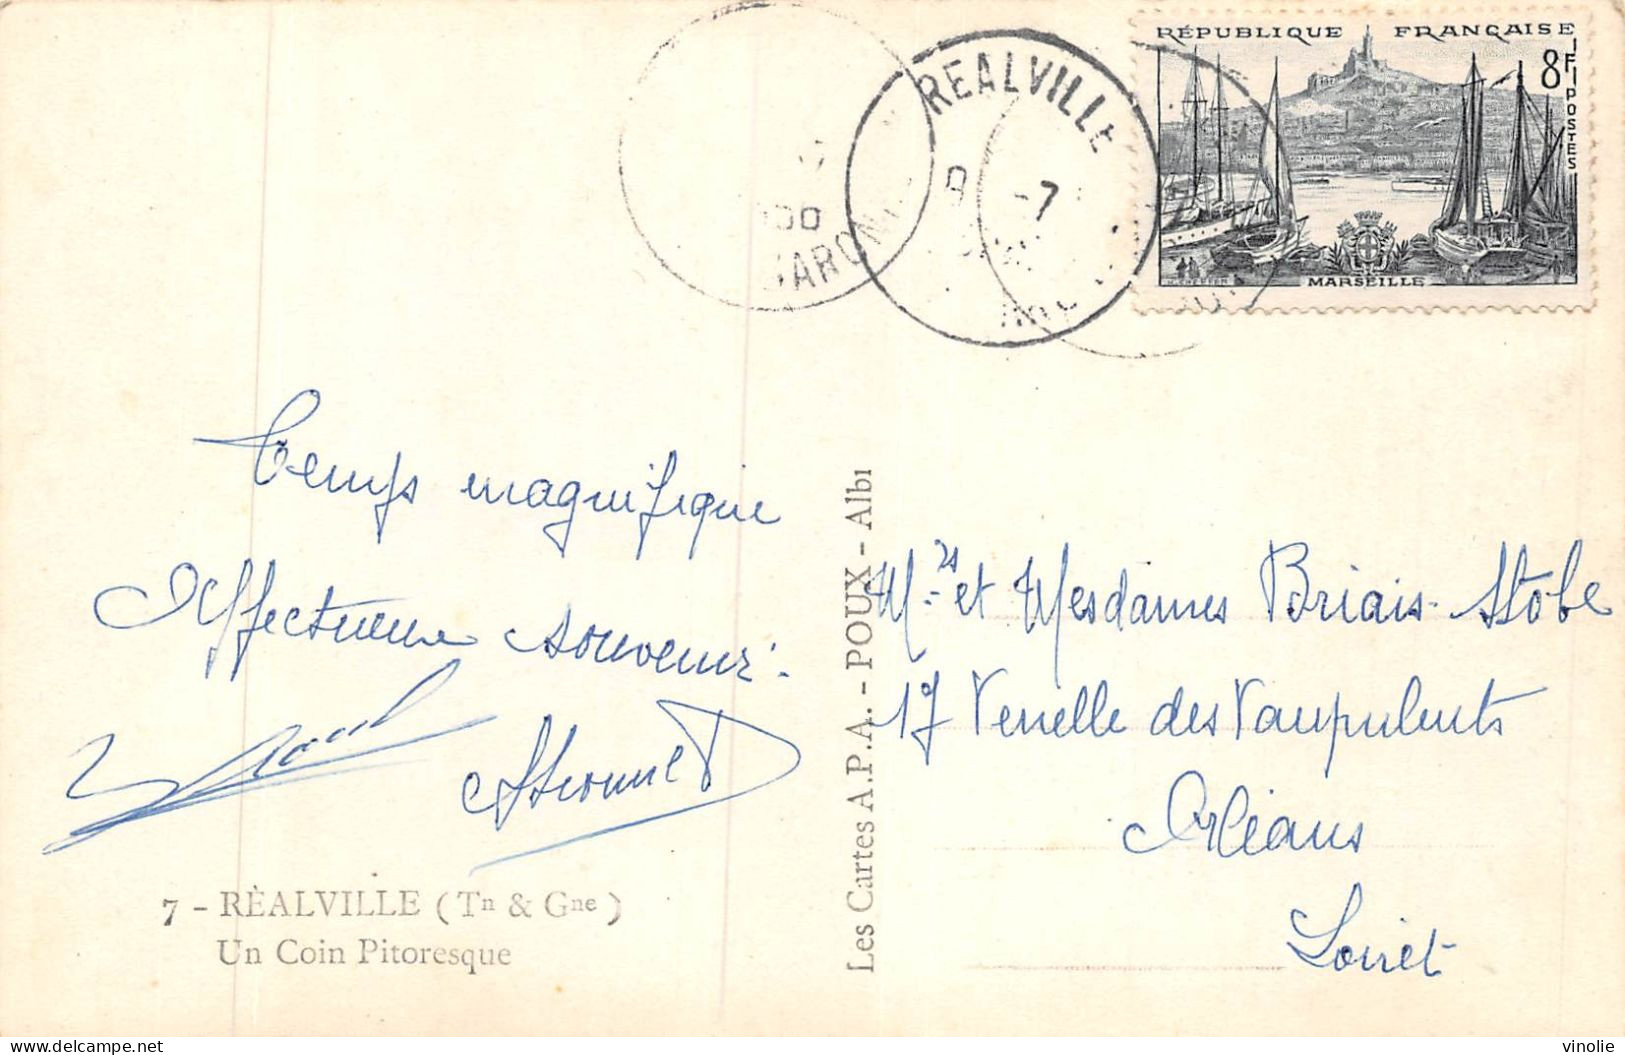 RÉPUBLIQUE FRANÇAISE
8F
POSTES
MARSEILLE
REALVILLE
-7
Temps magnifique
Affectueux souvenir.
Mrs et Mesdames Briais-Stobe
17 Venelle des Vaupulents
Orléans
Loiret
Les Cartes A.P.A. - POUX - Albi
7 - RÉALVILLE (Tn & Gne)
Un Coin Pitoresque
vinolie